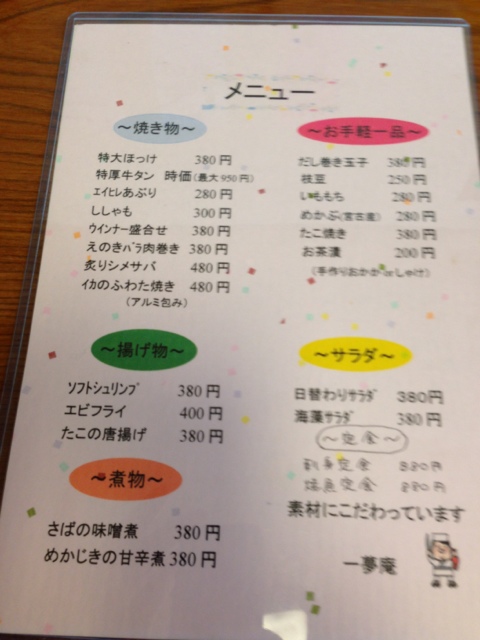 メニュー
～焼き物～
特大ほっけ 380円
特厚牛タン 時価(最大950円)
エイヒレあぶり 280円
ししゃも 300円
ウインナー盛合せ 380円
えのきバラ肉巻き 380円
炙りシメサバ 480円
イカのふわた焼き 480円
(アルミ包み)
～揚げ物～
ソフトシュリンプ 380円
エビフライ 400円
たこの唐揚げ 380円
～煮物～
さばの味噌煮 380円
めかじきの甘辛煮 380円
～お手軽一品～
だし巻き玉子 380円
枝豆 250円
いももち 280円
めかぶ(宮古産) 280円
たこ焼き 380円
お茶漬 200円
(手作りおかかorしゃけ)
～サラダ～
日替わりサラダ 380円
海藻サラダ 380円
～定食～
刺身定食 880円
焼魚定食 880円
素材にこだわっています
一夢庵